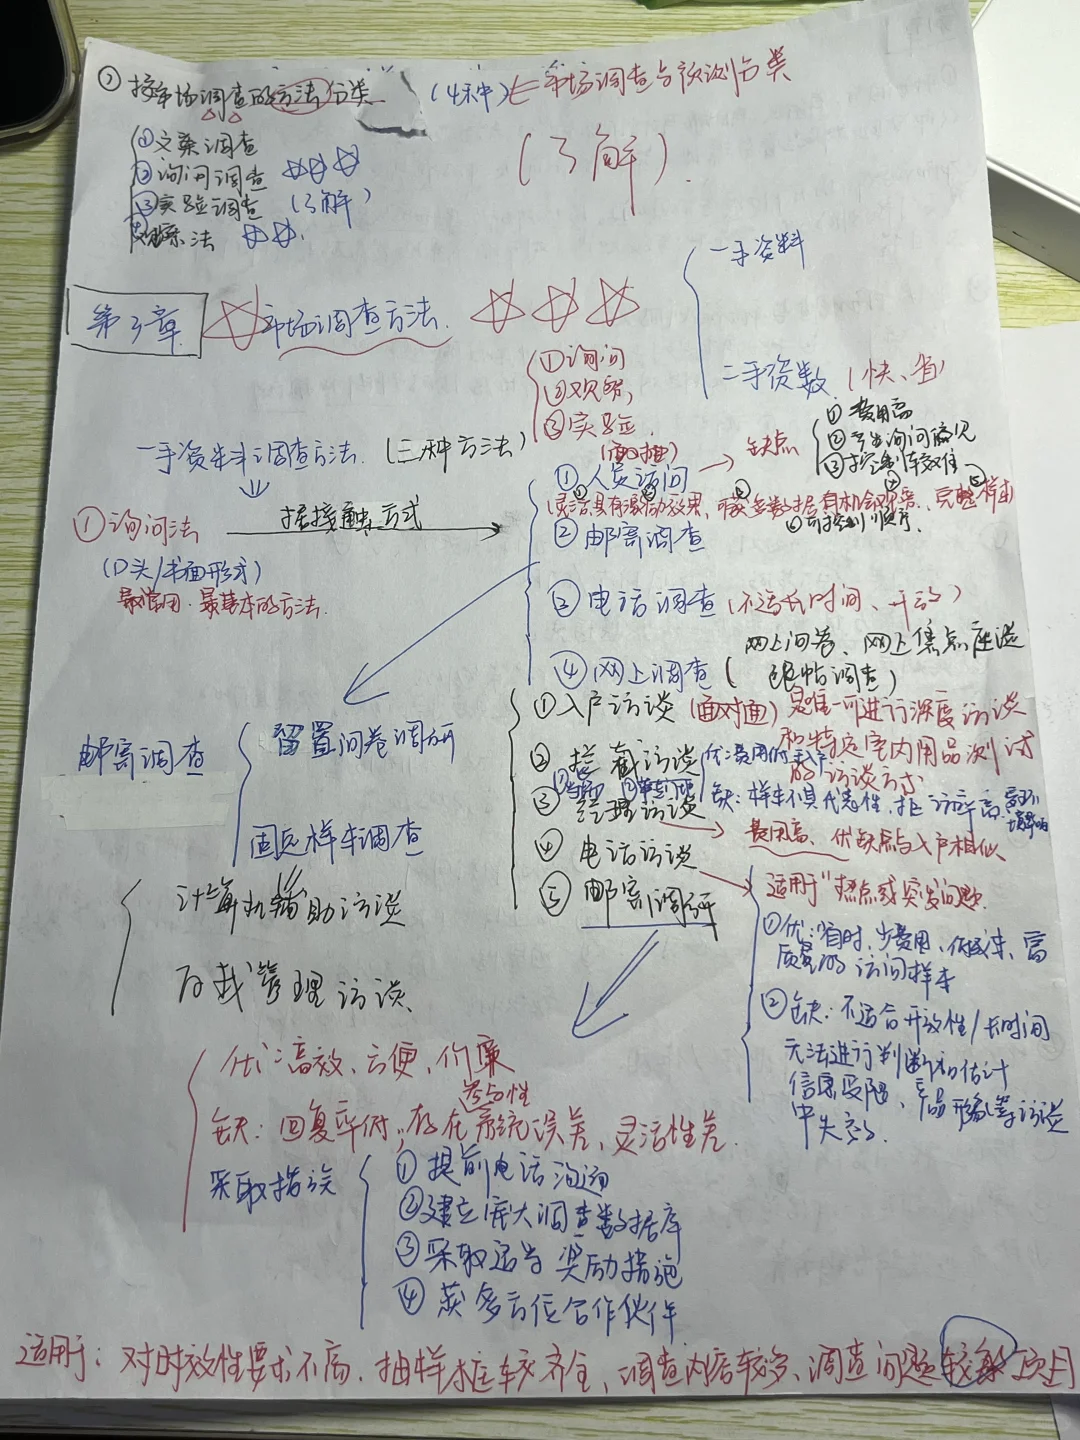 ② 按市场调查的方法分类 (4种) ← 市场调查与预测分类
(了解).
①文案调查
②询问调查
③实验调查 (了解)
观察法
第3章 市场调查方法.
一手资料
二手资数 (快、省)
①询问
②观察,
③实验.
一手资料调查方法. (三种方法)
(面对面)
①人员访问 → 缺点
①费用高
②产生询问偏见
③控制较难
①询问法 按接触方式
(口头/书面形式)
最常用.最基本的方法.
②邮寄调查
③电话调查 (不适长时间、开放)
④网上调查 (网上问卷、网上焦点座谈
跟帖调查)
邮寄调查
留置问卷调研
固定样本调查
①入户访谈 (面对面) 是唯一可进行深度访谈
和特定室内用品测试
的访谈方式
②拦截访谈
缺:样本不具代表性,拒访率高.
③经理访谈 → 费用高、优缺点与入户相似
④电话访谈
⑤邮寄调研
适用于"热点或突发问题.
①优:省时,少费用、低成本、高
质量的访问样本
②缺:不适合开放性/长时间
无法进行判断和估计
信息受限、产品形象等访谈
中失效.
计算机辅助访谈
自我管理访谈.
优:高效、方便、价廉
缺:回复率低,存在系统误差、灵活性差.
采取措施
①提前电话沟通
②建立庞大调查数据库
③采取适当奖励措施
④获多方位合作伙伴
适用于:对时效性要求不高.抽样框较齐全、调查内容较多、调查问题较 项目